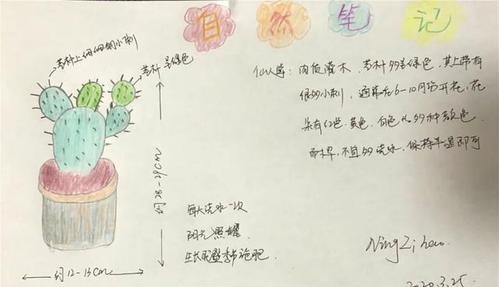 自然笔记
茎杆上细细的小刺
茎杆呈绿色
仙人掌：肉质灌木，茎杆多呈绿色，其上带有
很多小刺，通常在6-10月份开花，花
朵有红色、黄色、白色等多种颜色
耐旱，不宜多浇水，保持半湿即可
约28-29cm
每天浇水一次
阳光照耀
生长旺盛季节施肥
约12-13cm
NingZihao
2020.3.25